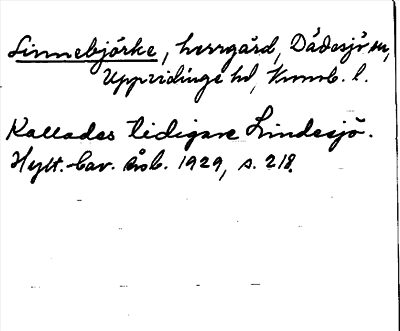 Linnebjörke, herrgård, Dädesjö sn,
Uppvidinge hd, Kronob. l.
Kallades tidigare Lindesjö.
Hylt.-Cav. årsb. 1929, s. 218.